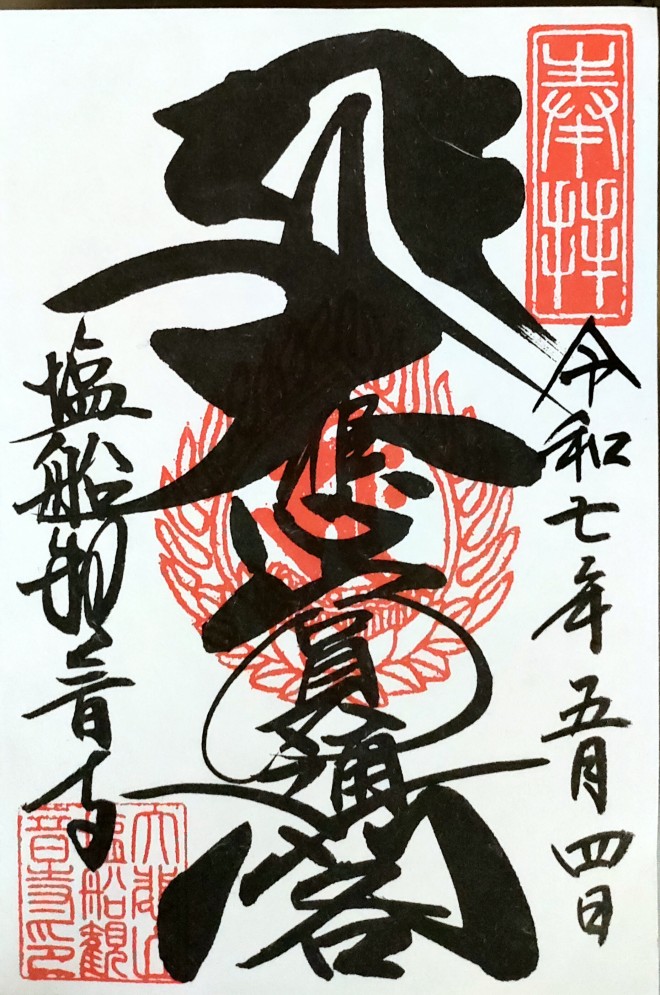 奉拝
令和七年五月四日
大悲圓通閣
塩船観音寺
大悲山
塩船観
音寺印